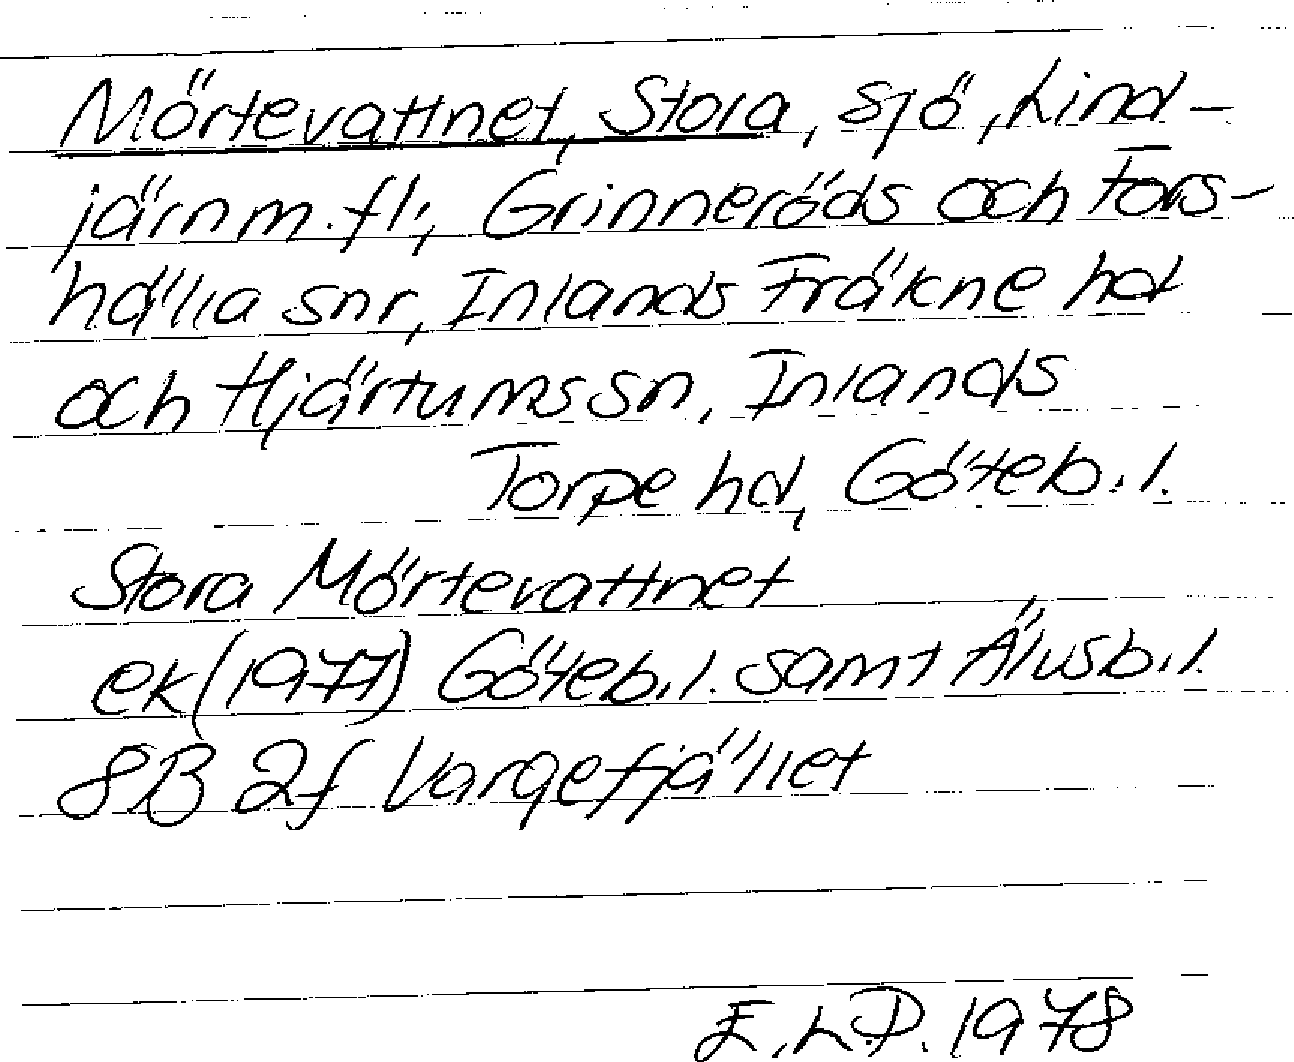 Mörtevattnet, Stora, sjö, Lind-
järn m.fl., Grinneröds och Fors-
hälla snr, Inlands Fräkne hd
och Hjärtums sn, Inlands
Torpe hd, Göteb.l.
Stora Mörtevattnet
ek(1977) Göteb.l. samt Älvsb.l.
8B 2f Vargefjället
E.L.P. 1978